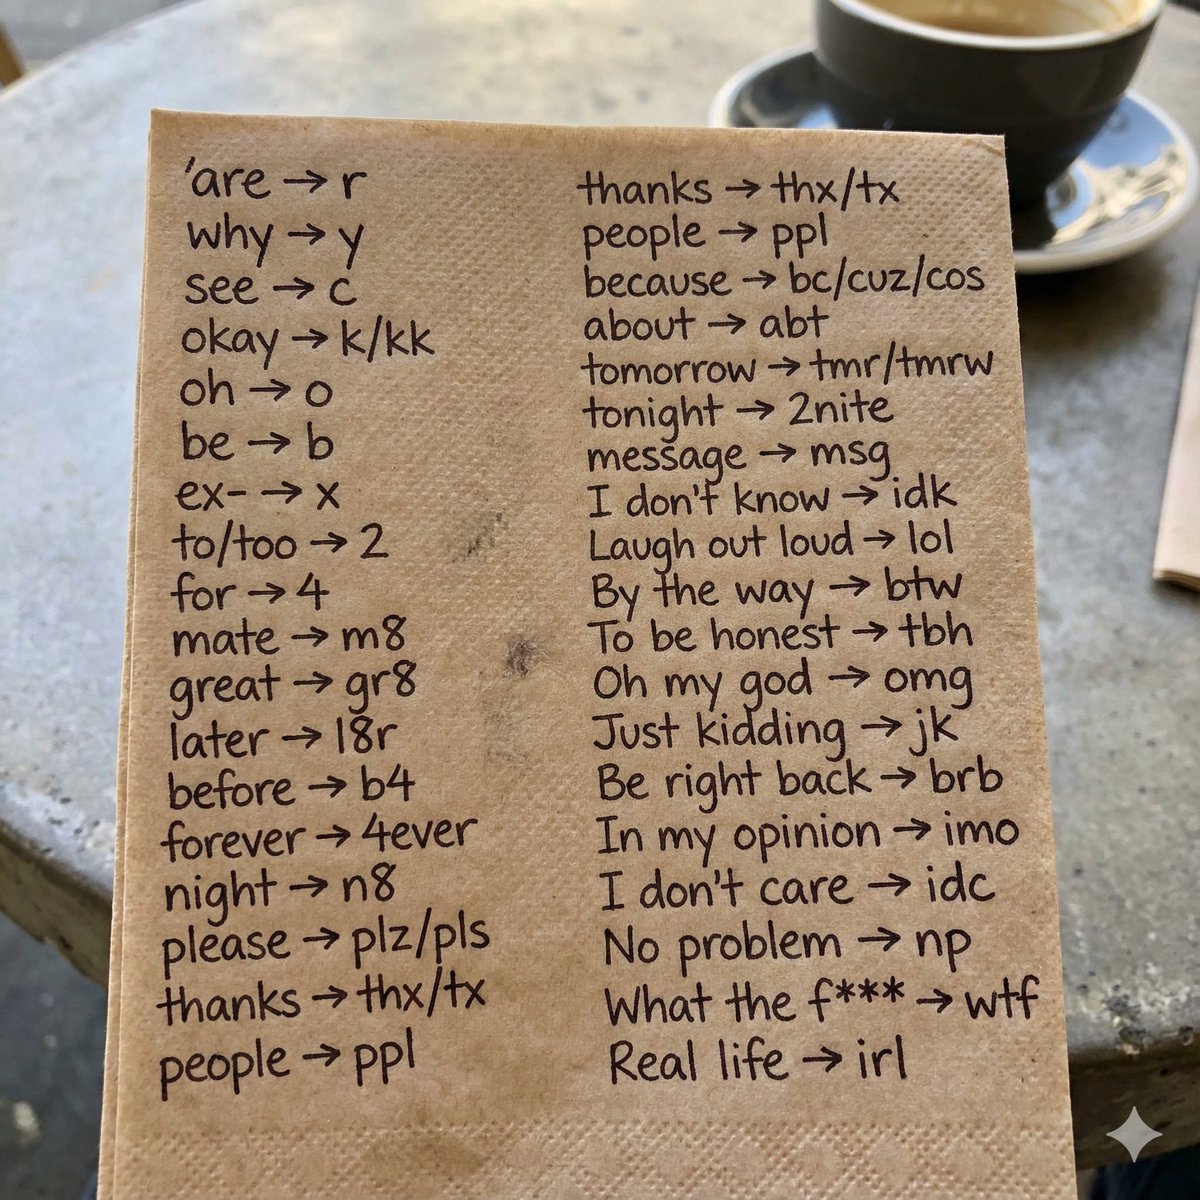 'are → r
why → y
see → c
okay → k/kk
oh → o
be → b
ex- → x
to/too → 2
for → 4
mate → m8
great → gr8
later → l8r
before → b4
forever → 4ever
night → n8
please → plz/pls
thanks → thx/tx
people → ppl
thanks → thx/tx
people → ppl
because → bc/cuz/cos
about → abt
tomorrow → tmr/tmrw
tonight → 2nite
message → msg
I don't know → idk
Laugh out loud → lol
By the way → btw
To be honest → tbh
Oh my god → omg
Just kidding → jk
Be right back → brb
In my opinion → imo
I don't care → idc
No problem → np
What the f*** → wtf
Real life → irl